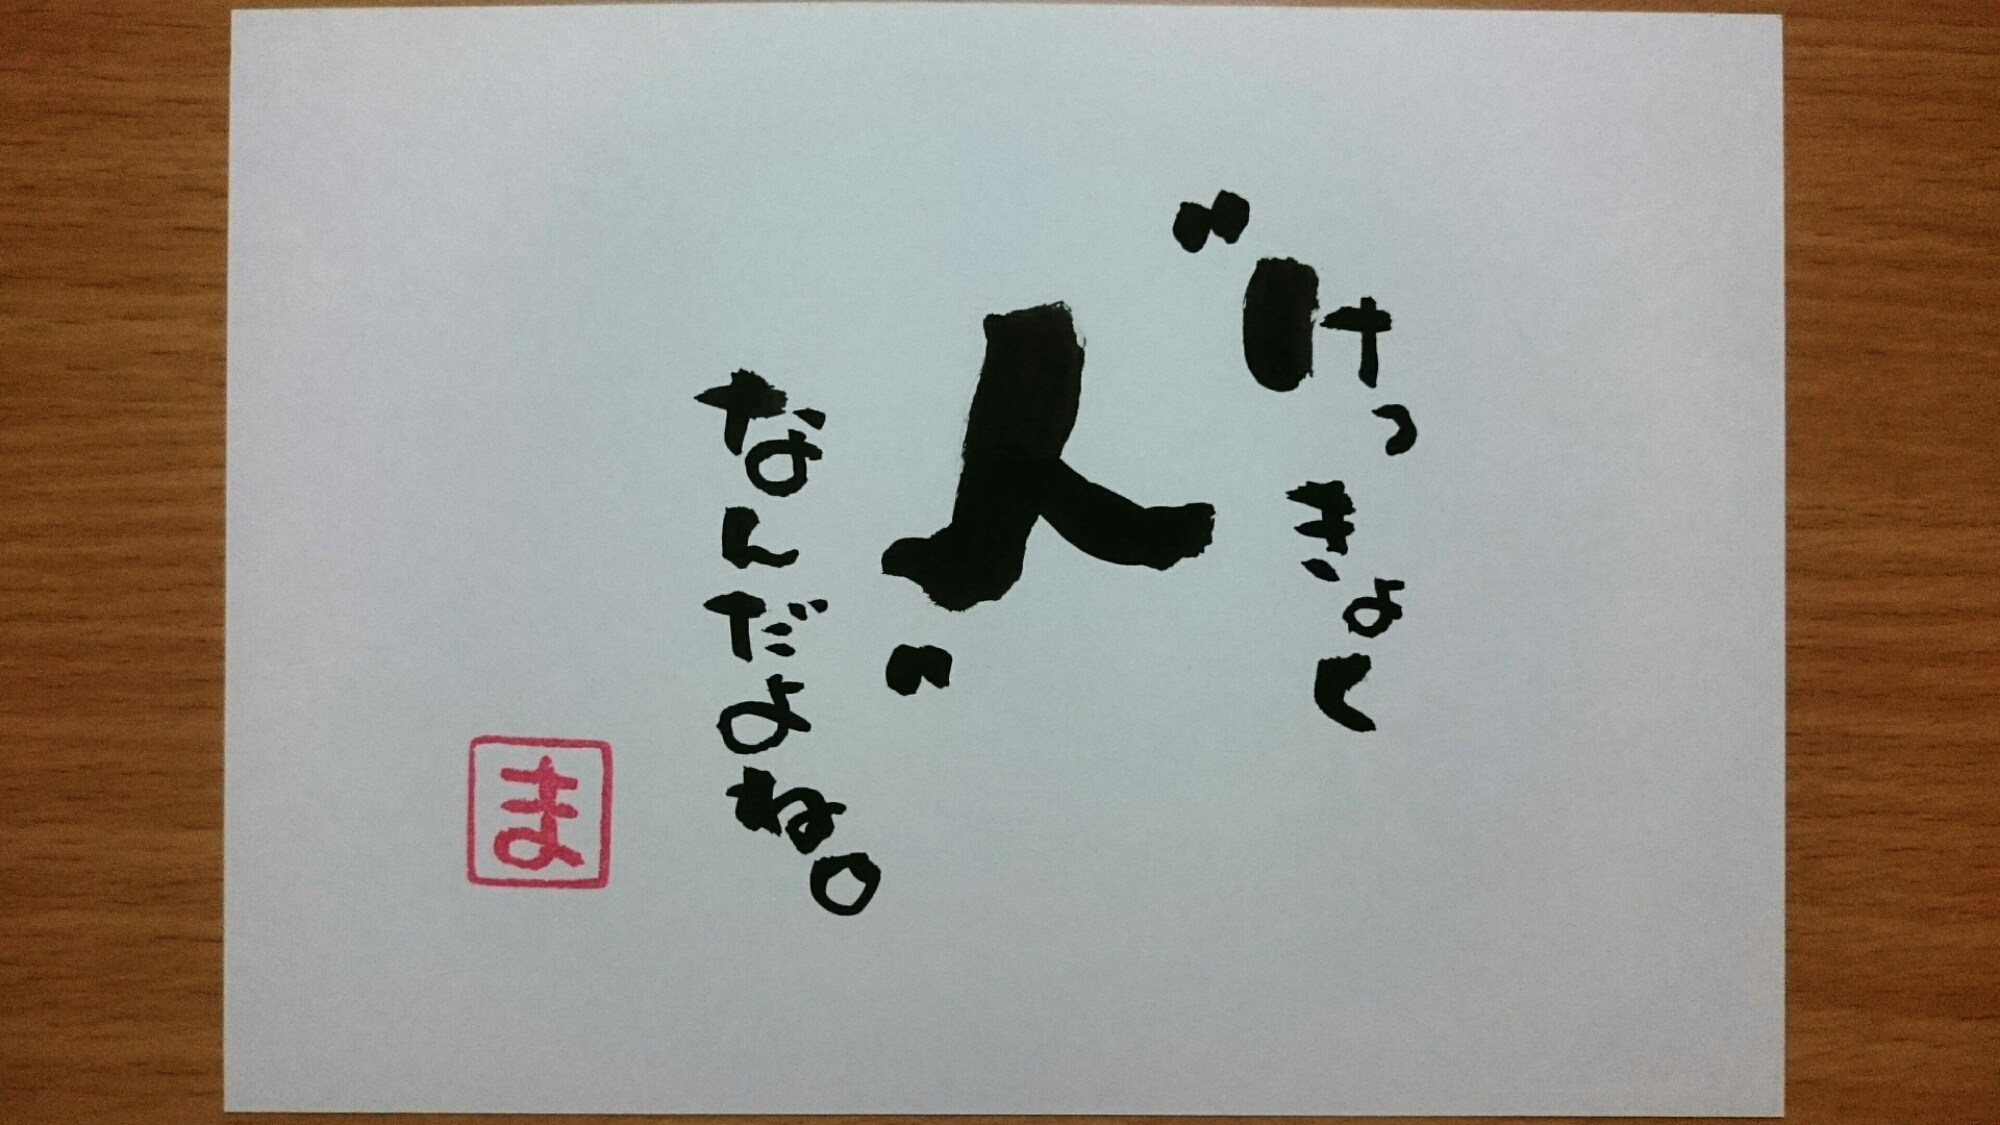 けっきょく
"人"
なんだよね。
ま